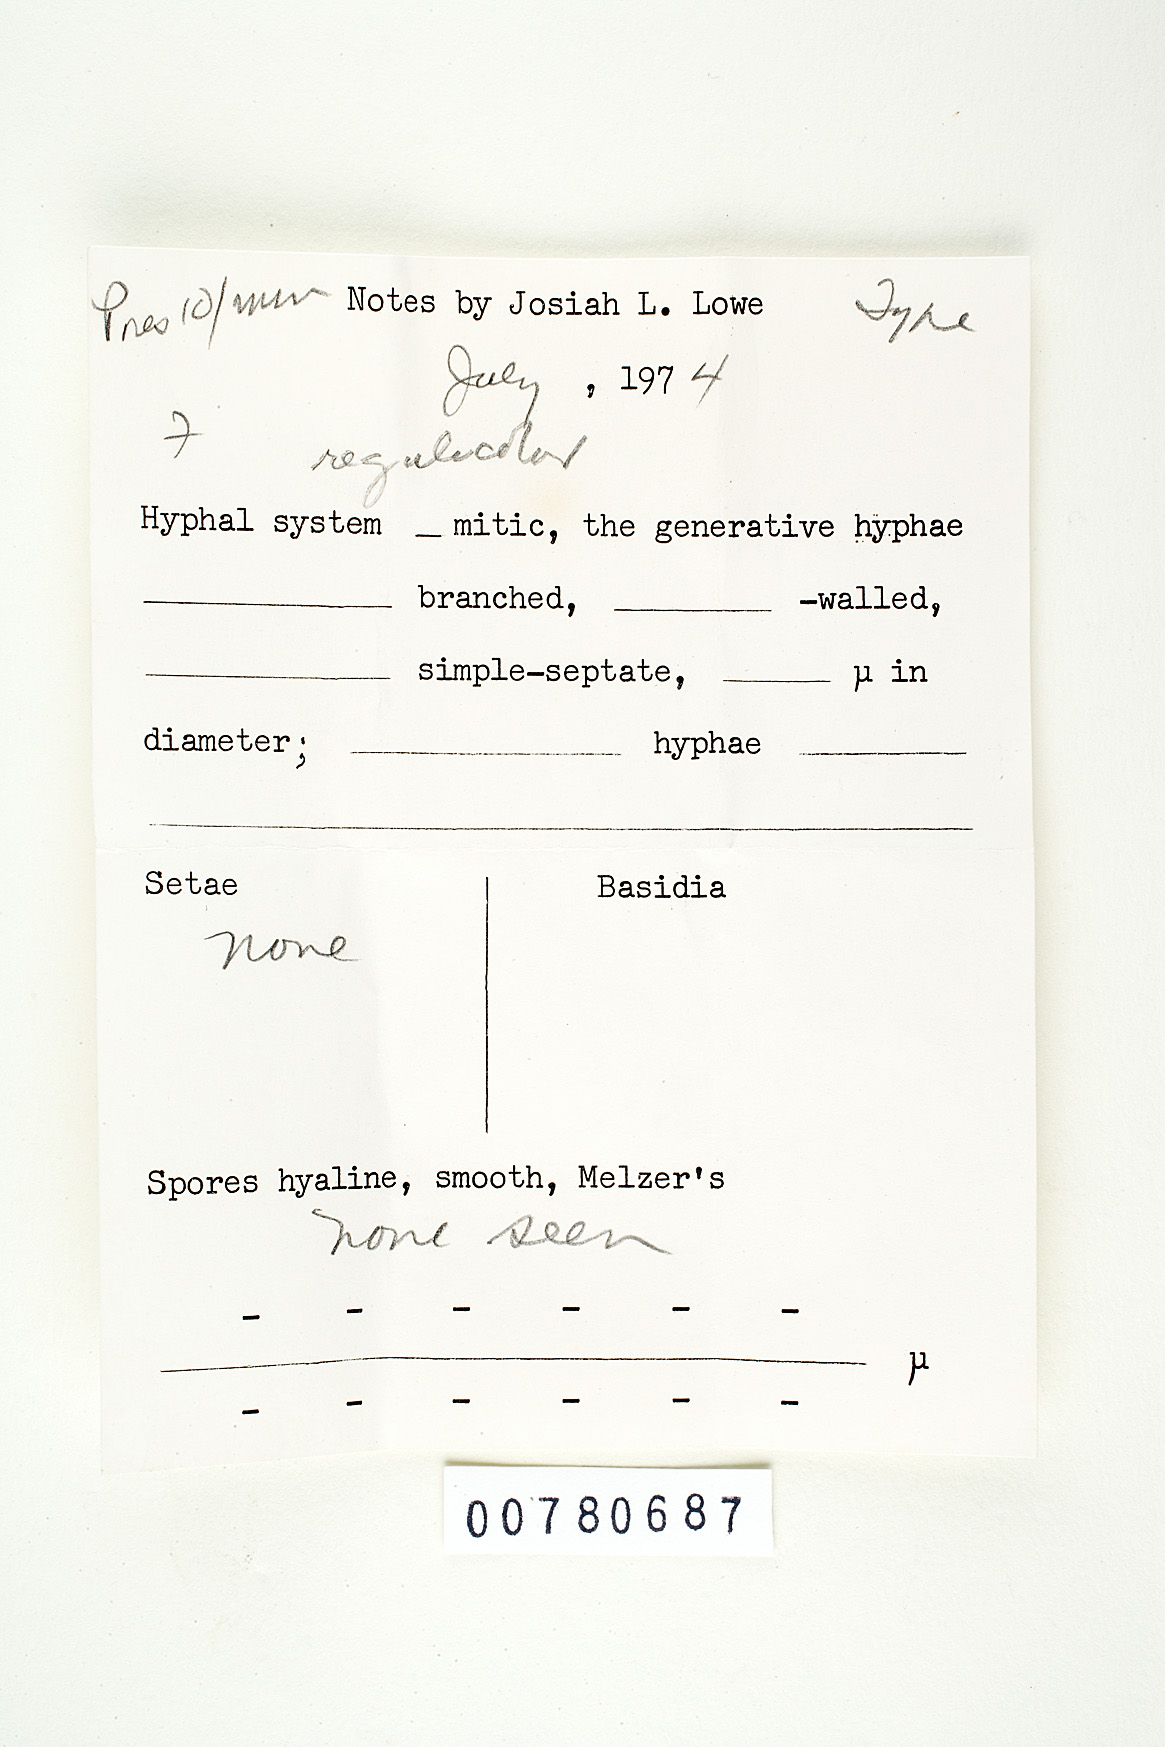 Pores 10/mm Notes by Josiah L. Lowe Type
July , 1974
F regulicolor
Hyphal system _ mitic, the generative hyphae
branched, -walled,
simple-septate, µ in
diameter; hyphae
Setae Basidia
none
Spores hyaline, smooth, Melzer's
none seen
- - - - - -
µ
- - - - - -
00780687